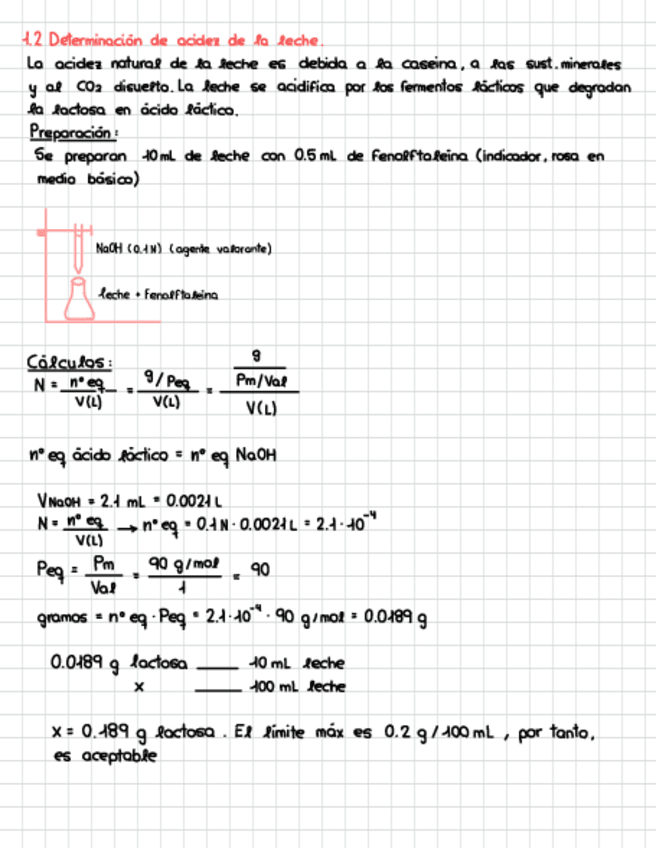 1.2 Determinación de acidez de la leche.
La acidez natural de la leche es debida a la caseina, a las sust. minerales
y al CO₂ disuelto. La leche se acidifica por los fermentos lácticos que degradan
la lactosa en ácido láctico.
Preparación:
Se preparan 10 mL de leche con 0.5 mL de Fenolftaleina (indicador, rosa en
medio básico)
NaOH (0.1N) (agente valorante)
leche + Fenolftaleina
Cálculos:
N = nº eq / V(L) = g/Peq / V(L) = g / Pm/Val / V(L)
nº eq ácido láctico = nº eq NaOH
V NaOH = 2.1 mL = 0.0021 L
N = nº eq / V(L) → nº eq = 0.1 N · 0.0021 L = 2.1 · 10⁻⁴
Peq = Pm / Val = 90 g/mol / 1 = 90
gramos = nº eq · Peq = 2.1 · 10⁻⁴ · 90 g/mol = 0.0189 g
0.0189 g lactosa —— 10 mL leche
x —— 100 mL leche
x = 0.189 g lactosa. El límite máx es 0.2 g / 100 mL, por tanto,
es aceptable